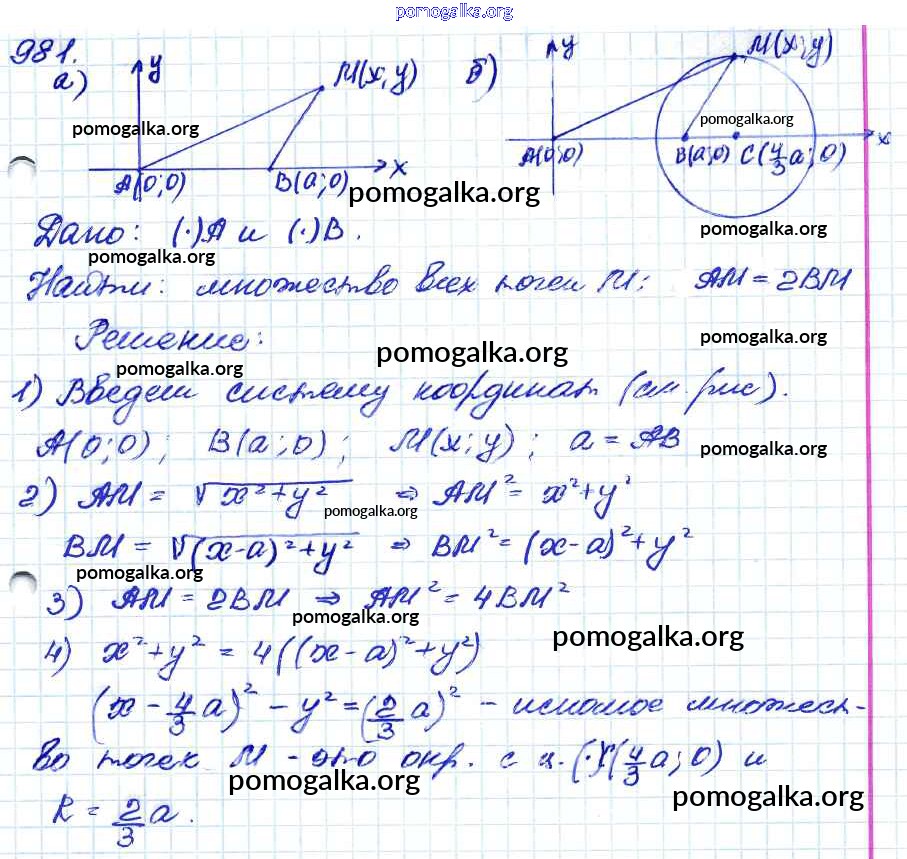 pomogalka.org
981.
а) y M(x; y) б) y M(x; y)
pomogalka.org pomogalka.org
A(0;0) B(a;0) x A(0;0) B(a;0) C(4/3 a; 0) x
pomogalka.org
Дано: (·)A и (·)B.
pomogalka.org pomogalka.org
Найти: множество всех точек M: AM = 2BM
Решение:
pomogalka.org pomogalka.org pomogalka.org
1) Введем систему координат (см. рис).
A(0;0); B(a;0); M(x;y); a = AB
pomogalka.org
2) AM = √(x²+y²) ⇒ AM² = x²+y²
pomogalka.org
BM = √((x-a)²+y²) ⇒ BM² = (x-a)²+y²
pomogalka.org
3) AM = 2BM ⇒ AM² = 4BM²
pomogalka.org
4) x²+y² = 4((x-a)²+y²)
pomogalka.org
(x - 4/3 a)² - y² = (2/3 a)² - искомое множест-
во точек M - это окр. с ц. (·)(4/3 a; 0) и
pomogalka.org pomogalka.org
R = 2/3 a.